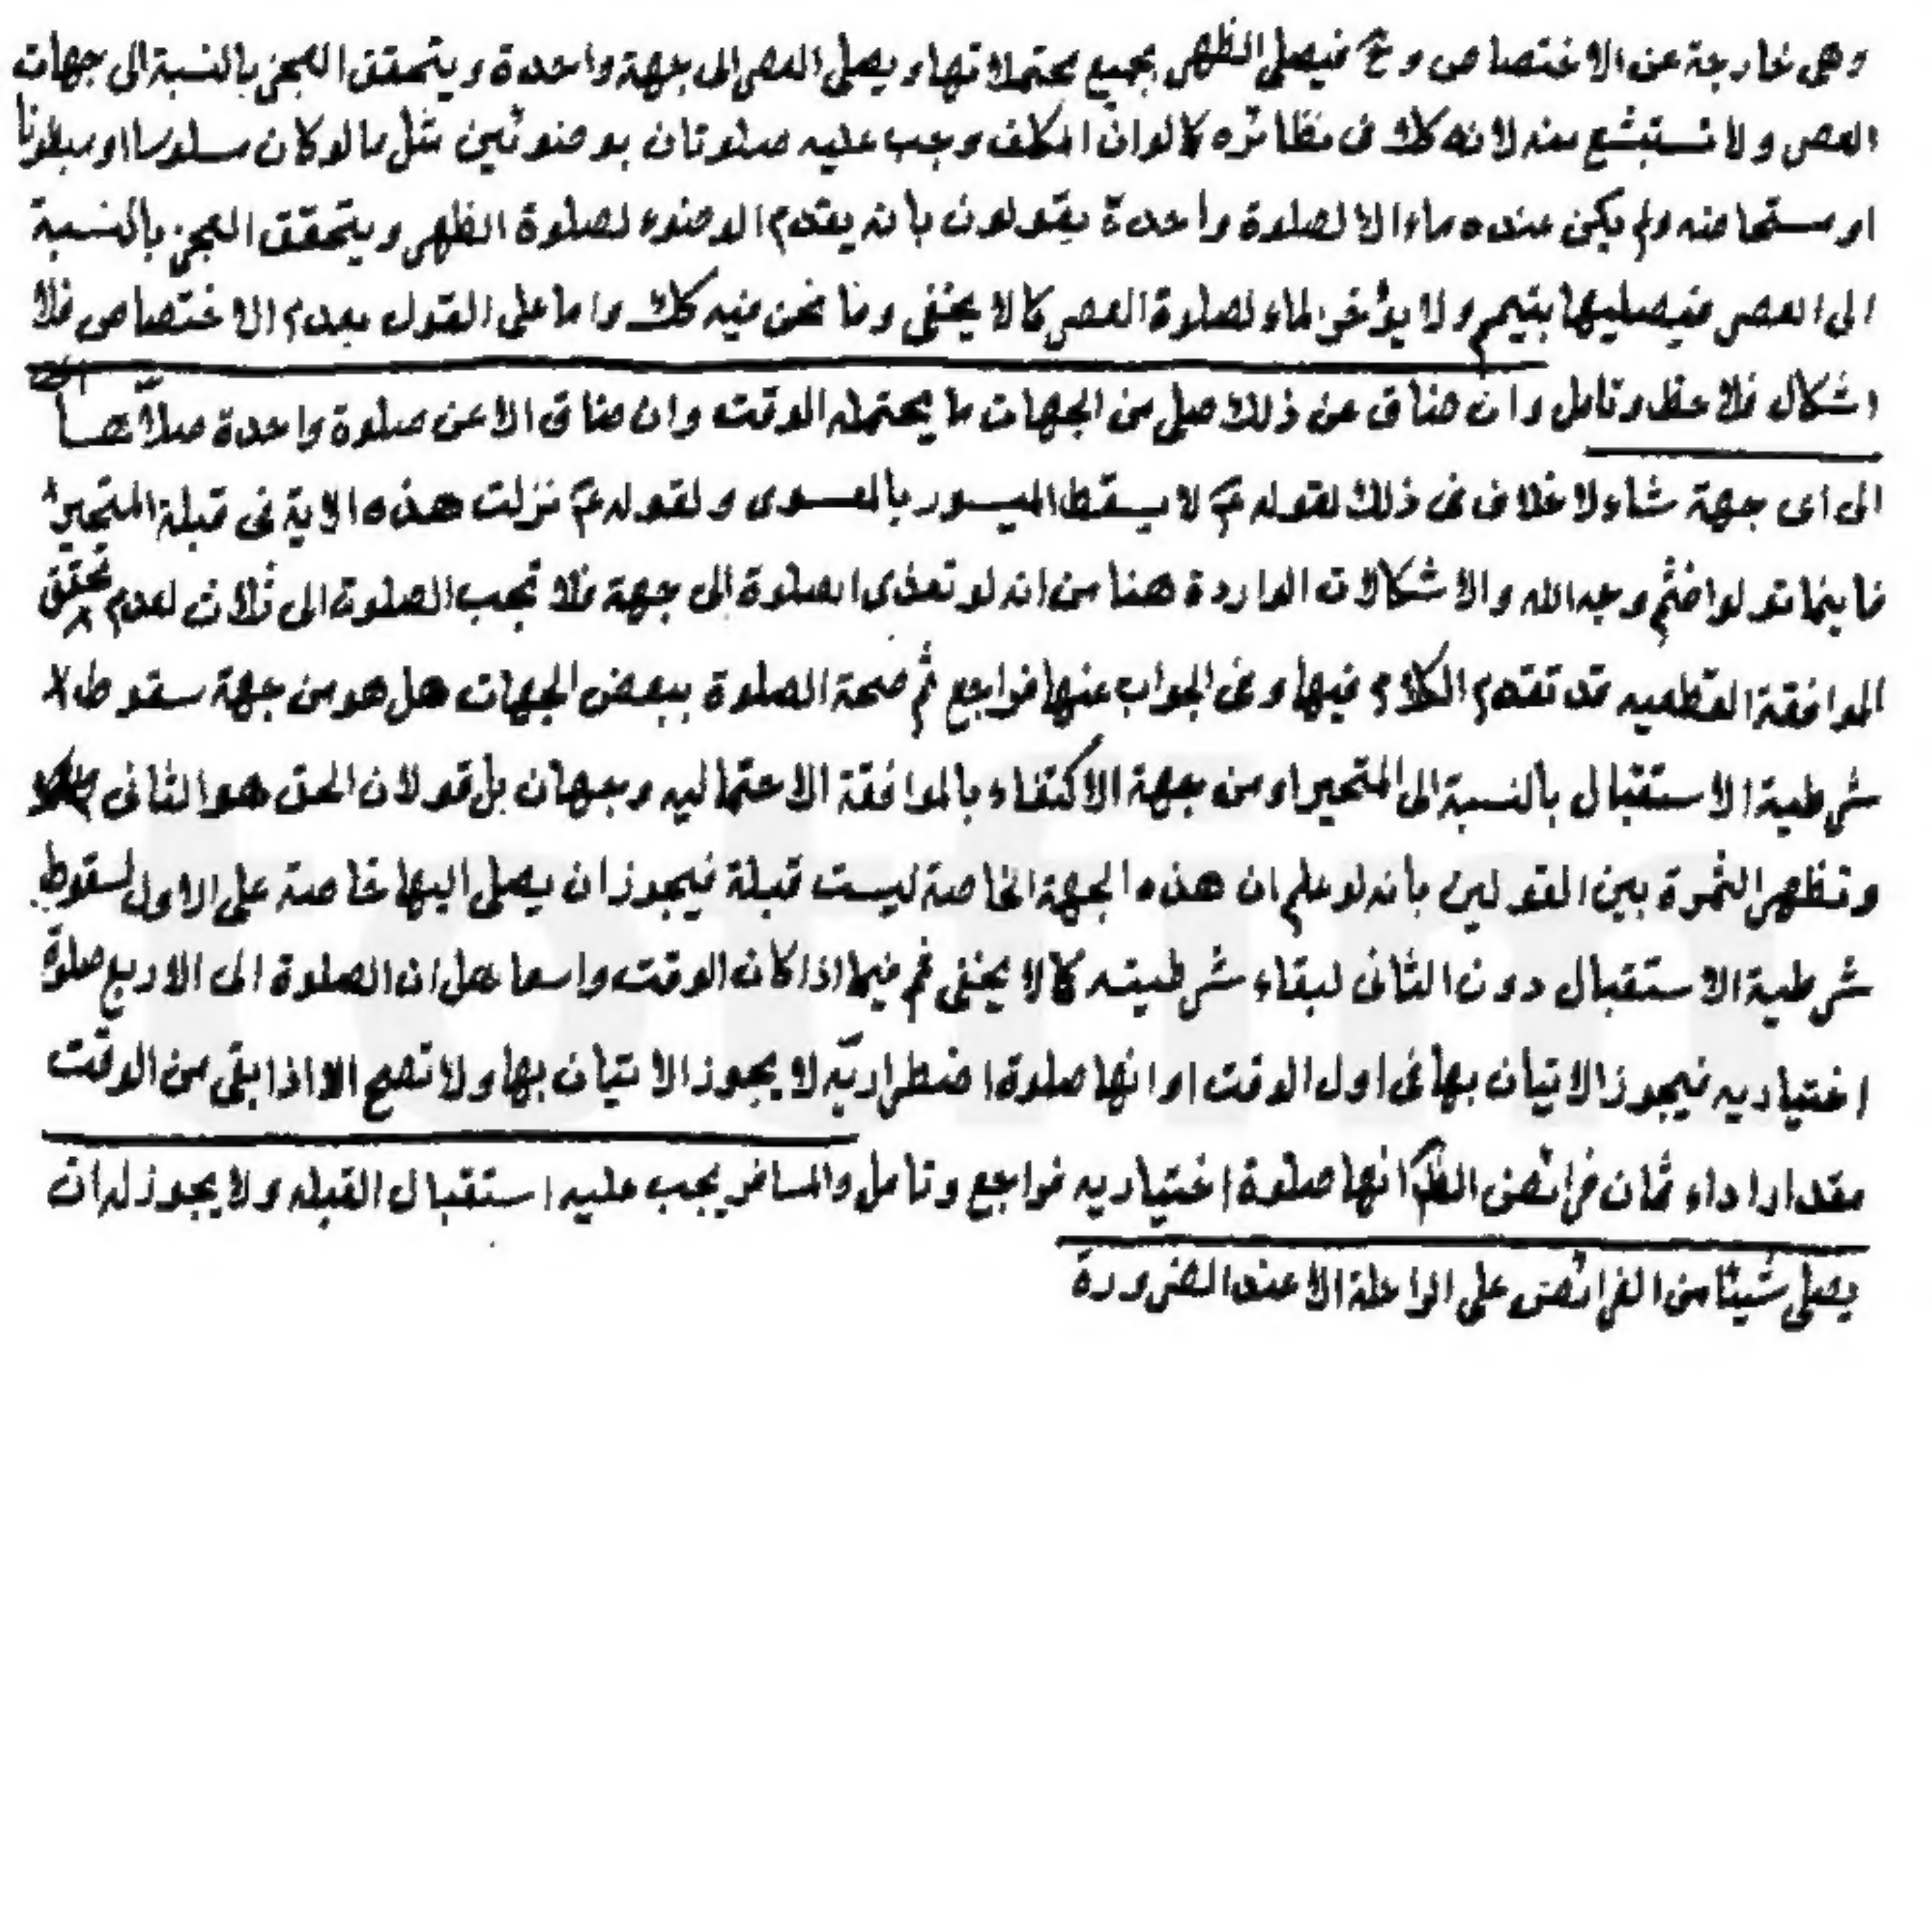 وهى خارجة عن الاختصاص وح فيصلى الظهر بجميع محتملاتها ويصلى العصر الى جهة واحدة ويتحقق العجز بالنسبة الى جهات
العصر ولا تستبشع منه لانه كك فى نظائره كما لو ان المكلف وجب عليه صلوتان بوضوئين مثل ما لو كان مسلوسا او مبطونا
او مستحاضه ولم يكن عنده ماء الا لصلوة واحدة يقولون بانه يقدم الوضوء لصلوة الظهر ويتحقق العجز بالنسبة
الى العصر فيصليها بتيمم ولا يؤخر الماء لصلوة العصر كما لا يخفى وما نحن فيه كك واما على القول بعدم الاختصاص فلا
اشكال فلاحظ وتامل وان ضاق عن ذلك صلى من الجهات ما يحتمله الوقت وان ضاق الا عن صلوة واحدة صلاها
الى اى جهة شاء ولا خلاف فى ذلك لقوله ع لا يسقط الميسور بالمعسور ولقوله ع نزلت هذه الاية فى قبلة المتحير
فاينما تولوا فثم وجه الله والاشكالات الواردة هنا من انه لو تعذر الصلوة الى جهة فلا تجب الصلوة الى ثلاث لعدم تحقق
الموافقة القطعيه قد تقدم الكلام فيها وفى الجواب عنها فراجع ثم صحة الصلوة ببعض الجهات هل هو من جهة سقوط
شرطية الاستقبال بالنسبة الى المتحير او من جهة الاكتفاء بالموافقة الاحتماليه وجهان بل قولان الحق هو الثانى
وتظهر الثمرة بين القولين بانه لو علم ان هذه الجهة الخاصة ليست قبلة فيجوز ان يصلى اليها خاصة على الاول لسقوط
شرطية الاستقبال دون الثانى لبقاء شرطيته كما لا يخفى ثم فيما اذا كان الوقت واسعا هل ان الصلوة الى الاربع صلوة
اختياريه فيجوز الاتيان بها فى اول الوقت او انها صلوة اضطراريه لا يجوز الاتيان بها ولا تصح الا اذا بقى من الوقت
مقدار اداء ثمان فرائض الظ انها صلوة اختياريه فراجع وتامل والمسافر يجب عليه استقبال القبله ولا يجوز له ان
يصلى شيئا من الفرائض على الراحلة الا عند الضرورة